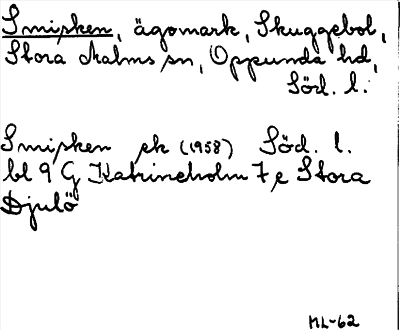 Smisken, ägomark, Skuggebol,
Stora Malms sn, Oppunda hd,
Söd. l.
Smisken ek (1958) Söd. l.
bl 9 G Katrineholm 7 e Stora
Djulö
ML-62